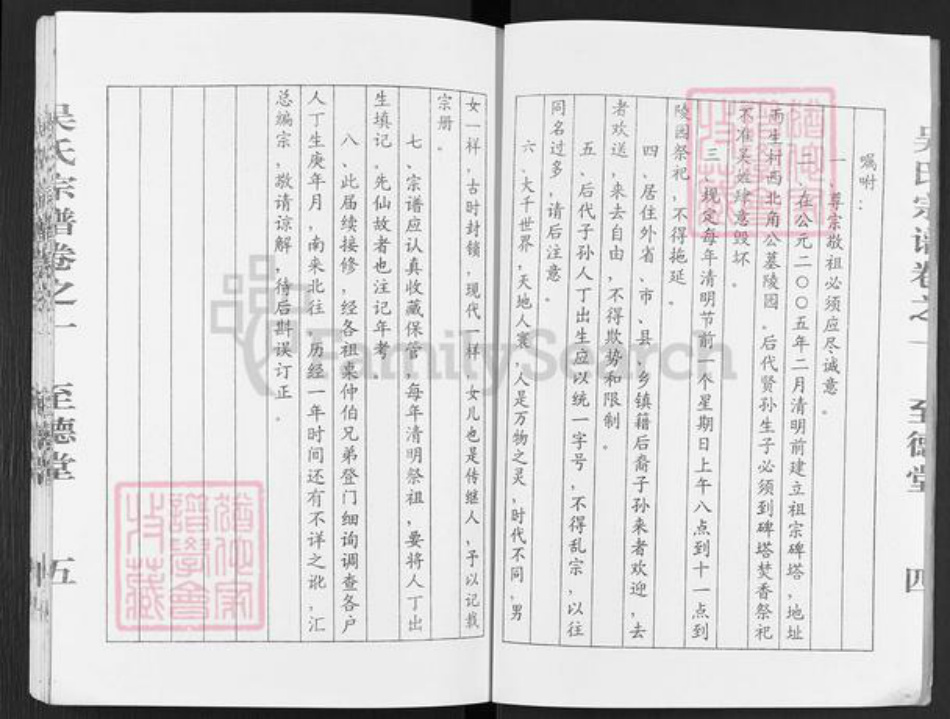 吴氏宗谱卷之一 至德堂 四
嘱咐：
一、尊宗敬祖必须应尽诚意。
二、在公元二〇〇五年二月清明前建立祖宗碑塔，地址
雨生村西北角公墓陵园。后代贤孙生子必须到碑塔焚香祭祀
不准关难肆意毁坏。
三、规定每年清明节前一个星期日上午八点到十一点到
陵园祭祀，不得拖延。
四、居住外省、市、县、乡镇籍后裔子孙来者欢迎，去
者欢送，来去自由，不得欺势和限制。
五、后代子孙人丁出生应以统一字号，不得乱宗，以往
同名过多，请后注意。
六、大千世界，天地人寰，人是万物之灵，时代不同，男
女一样，古时封锁，现代一样，女儿也是传继人，予以记载
宗册。
七、宗谱应认真收藏保管，每年清明祭祖，要将人丁出
生填记。先仙故者也注记年考。
八、此届续接修，经各祖束仲伯兄弟登门细询调查各户
人丁生庚年月，南来北往。历经一年时间还有不详之讹，汇
总编宗，敬请谅解，待后斟误订正。
吴氏宗谱卷之一 至德堂 五
FamilySearch